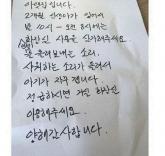 아랫집 입니다.
2개월 신생아가 있어서
밤 10시 - 오전 8시에는
화장실 사용을 신가해주세요
물 흘려보내는 소리,
샤워하는 소리가 울려서
아기가 자꾸 깹니다.
정 급하시면 거실 화장실
이용해주세요.
양해간사합니다.